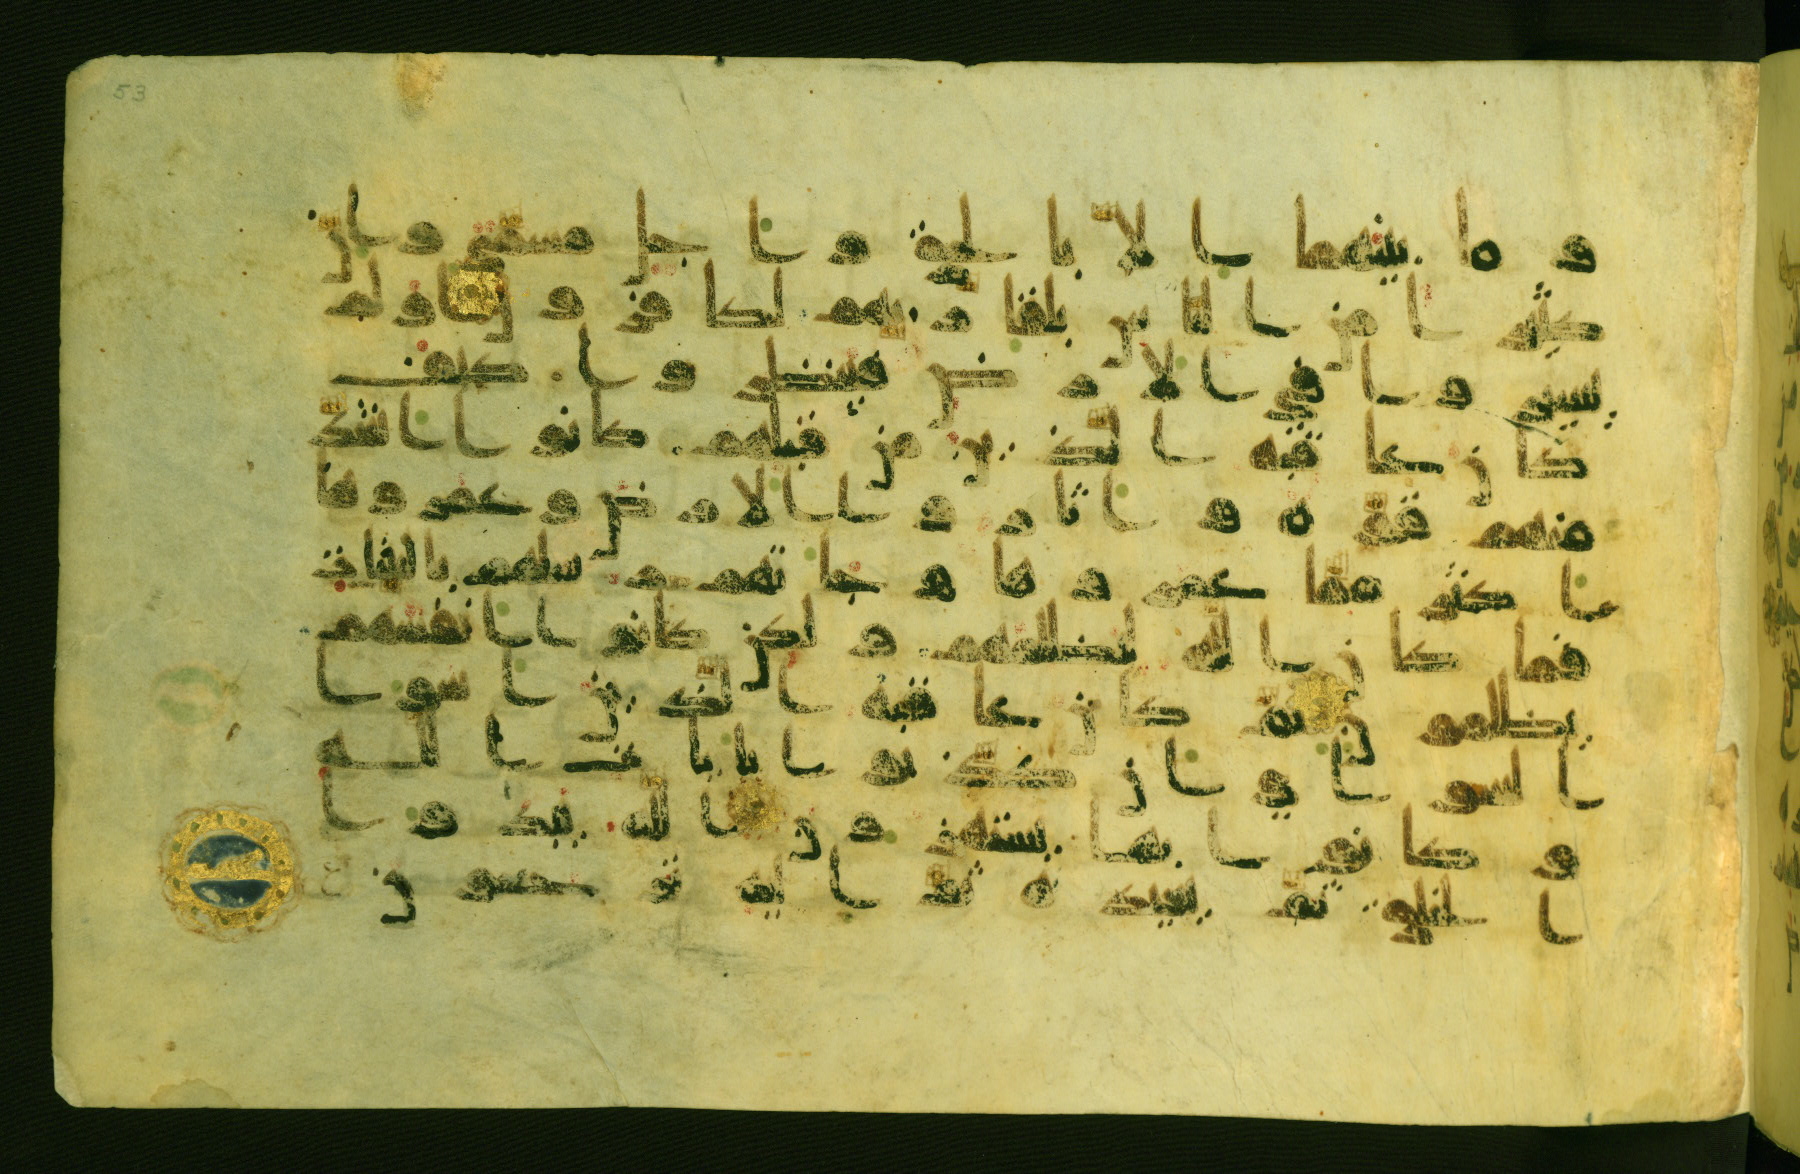 53
و ما بينهما الا بالحق و اجل مسمى و ان
كثيرا من الناس بلقاى ربهم لكفرون اولم
يسيروا في الارض فينظروا كيف
كان عقبة الذين من قبلهم كانوا اشد
منهم قوة و اثاروا الارض و عمروها
اكثر مما عمروها و جاتهم رسلهم بالبينت
فما كان الله ليظلمهم و لكن كانوا انفسهم
يظلمون ثم كان عقبة الذين اسوا ا
لسواى ان كذبوا بايت الله
و كانوا بها يستهزون الله يبدوا ا
لخلق ثم يعيده ثم اليه ترجعون